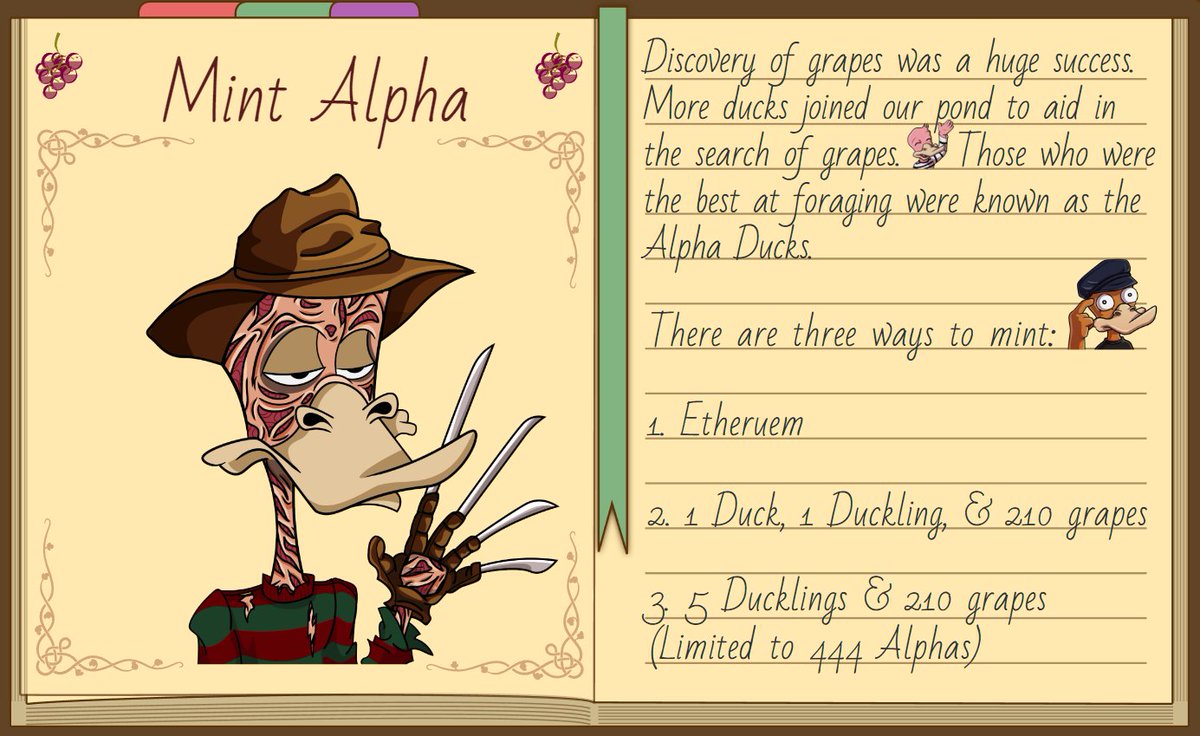 Mint Alpha
Discovery of grapes was a huge success.
More ducks joined our pond to aid in
the search of grapes. Those who were
the best at foraging were known as the
Alpha Ducks.
There are three ways to mint:
1. Etheruem
2. 1 Duck, 1 Duckling, & 210 grapes
3. 5 Ducklings & 210 grapes
(Limited to 444 Alphas)